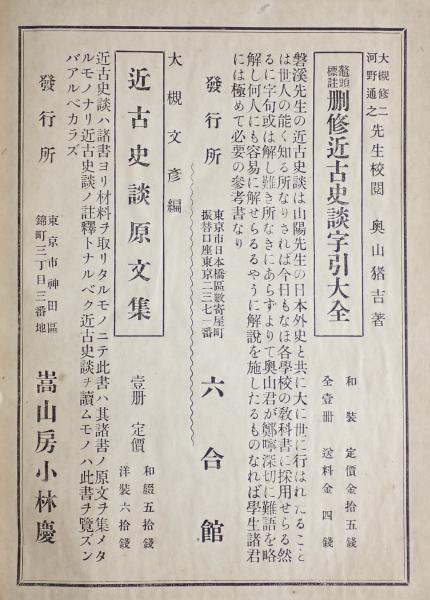 大槻修二
河野通之
先生校閱 奥山猪吉著
鼇頭
標註
刪修近古史談字引大全
和裝 定價金拾五錢
全壹册 送料金四錢
磐溪先生の近古史談は山陽先生の日本外史と共に大に世に行はれたること
は世人の能く知る所なりされば今日もなほ各學校の敎科書に採用せらる然
るに字句或は解し難き所なきにあらずよりて奥山君が鄭寧深切に難語を略
解し何人にも容易に解せらるるやうに解說を施したるものなれば學生諸君
には極めて必要の參考書なり
發行所
東京市日本橋區數寄屋町
振替口座東京二三七一番
六合館
大槻文彥編
近古史談原文集
壹册 定價
和綴五拾錢
洋裝六拾錢
近古史談ハ諸書ヨリ材料ヲ取リタルモノニテ此書ハ其諸書ノ原文ヲ集メタ
ルモノナリ近古史談ノ註釋トナルベク近古史談ヲ讀ムモノハ此書ヲ覽ズン
バアルベカラズ
發行所
東京市神田區
錦町三丁目二番地
嵩山房小林慶